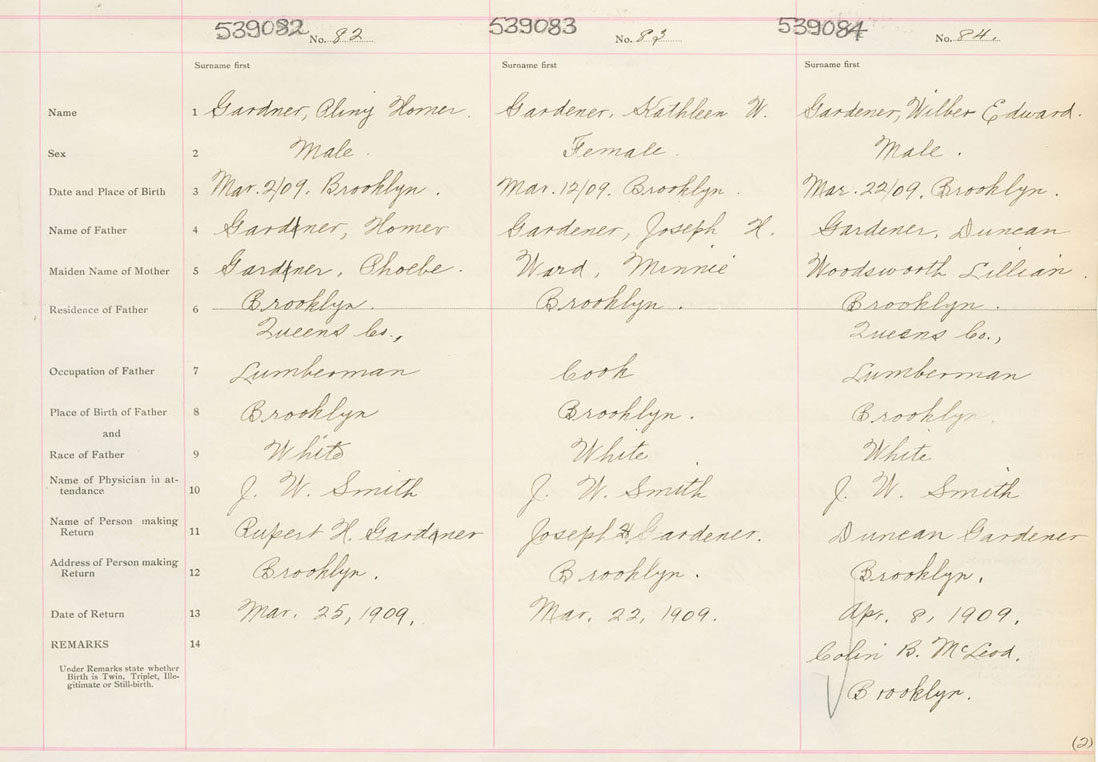 539082 No. 82 539083 No. 83 539084 No. 84.
Surname first Surname first Surname first
Name 1 Gardner, Cliny Homer. Gardener, Kathleen W. Gardener, Wilber Edward.
Sex 2 Male. Female. Male.
Date and Place of Birth 3 Mar. 2/09. Brooklyn. Mar. 12/09. Brooklyn. Mar. 22/09. Brooklyn.
Name of Father 4 Gardner, Homer Gardener, Joseph H. Gardener, Duncan
Maiden Name of Mother 5 Gardner, Choebe. Ward, Minnie Woodsworth Lillian.
Residence of Father 6 Brooklyn. Brooklyn. Brooklyn.
Queens Co., Queens Co.,
Occupation of Father 7 Lumberman Cook Lumberman
Place of Birth of Father 8 Brooklyn Brooklyn. Brooklyn.
and
Race of Father 9 White White White
Name of Physician in at-
tendance 10 J. W. Smith J. W. Smith J. W. Smith
Name of Person making
Return 11 Rupert H. Gardner Joseph H. Gardener. Duncan Gardener
Address of Person making
Return 12 Brooklyn. Brooklyn. Brooklyn.
Date of Return 13 Mar. 25, 1909. Mar. 22, 1909. Apr. 8, 1909.
REMARKS 14 Colin B. McLeod,
Under Remarks state whether
Birth is Twin, Triplet, Ille-
gitimate or Still-birth.
Brooklyn.
(2)